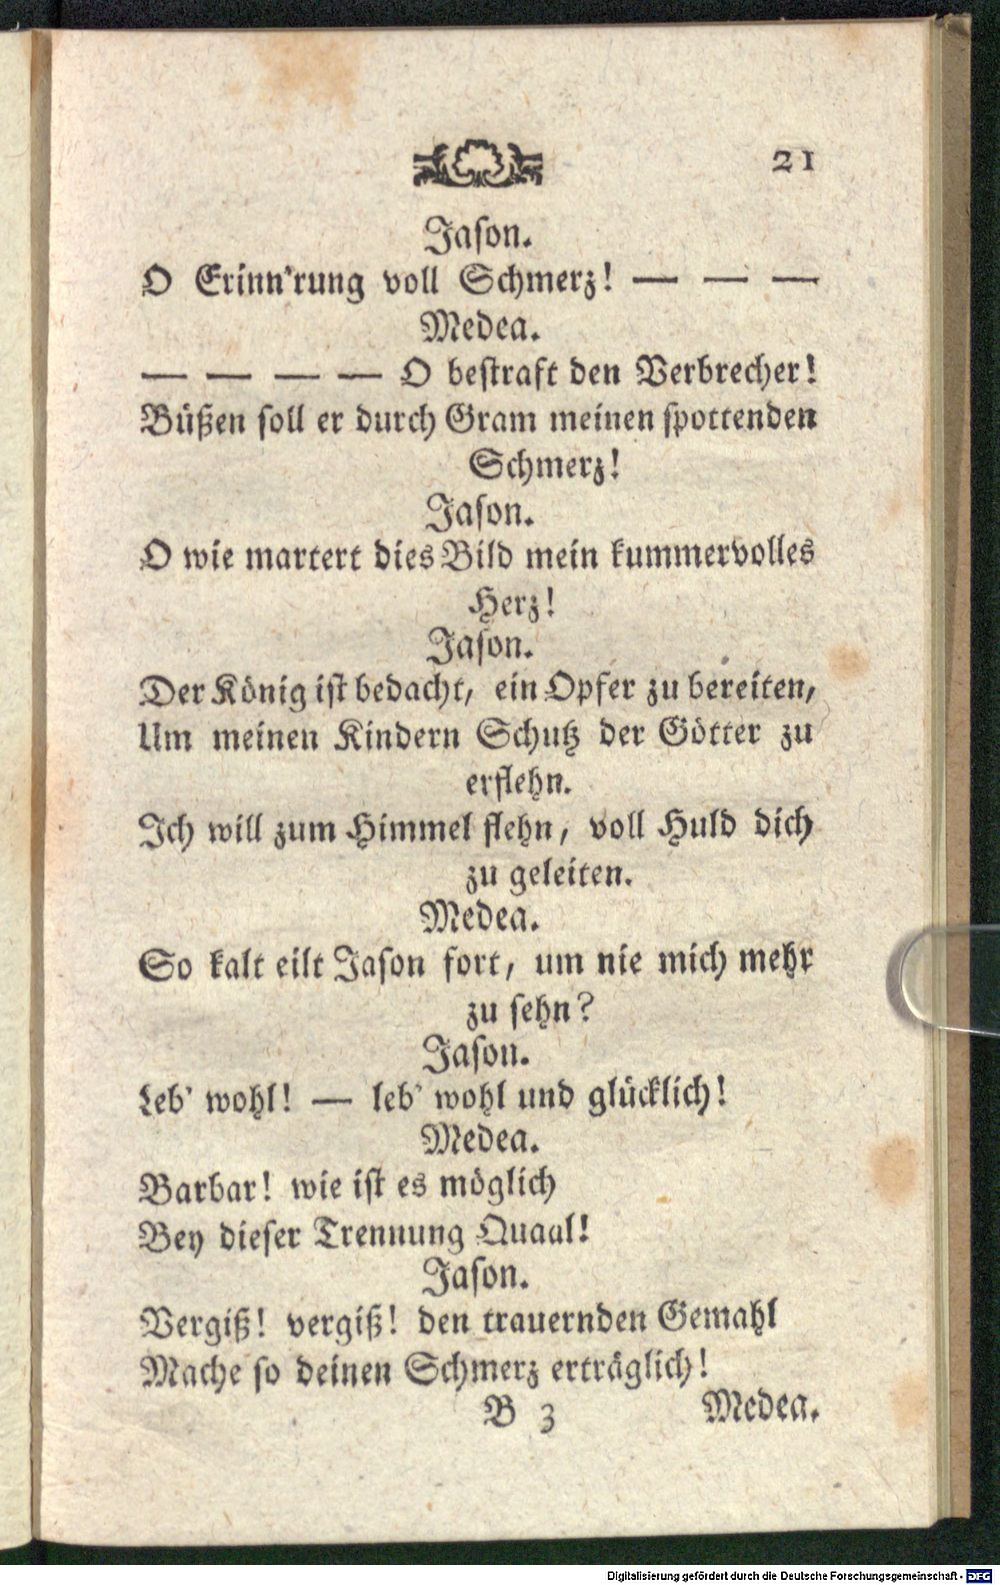 21
Jason.
O Erinn'rung voll Schmerz! — — —
Medea.
— — — — O bestraft den Verbrecher!
Büßen soll er durch Gram meinen spottenden
Schmerz!
Jason.
O wie martert dies Bild mein kummervolles
Herz!
Jason.
Der König ist bedacht, ein Opfer zu bereiten,
Um meinen Kindern Schutz der Götter zu
erflehn.
Ich will zum Himmel flehn, voll Huld dich
zu geleiten.
Medea.
So kalt eilt Jason fort, um nie mich mehr
zu sehn?
Jason.
Leb' wohl! — leb' wohl und glücklich!
Medea.
Barbar! wie ist es möglich
Bey dieser Trennung Quaal!
Jason.
Vergiß! vergiß! den trauernden Gemahl
Mache so deinen Schmerz erträglich!
B 3 Medea.
Digitalisierung gefördert durch die Deutsche Forschungsgemeinschaft - DFG